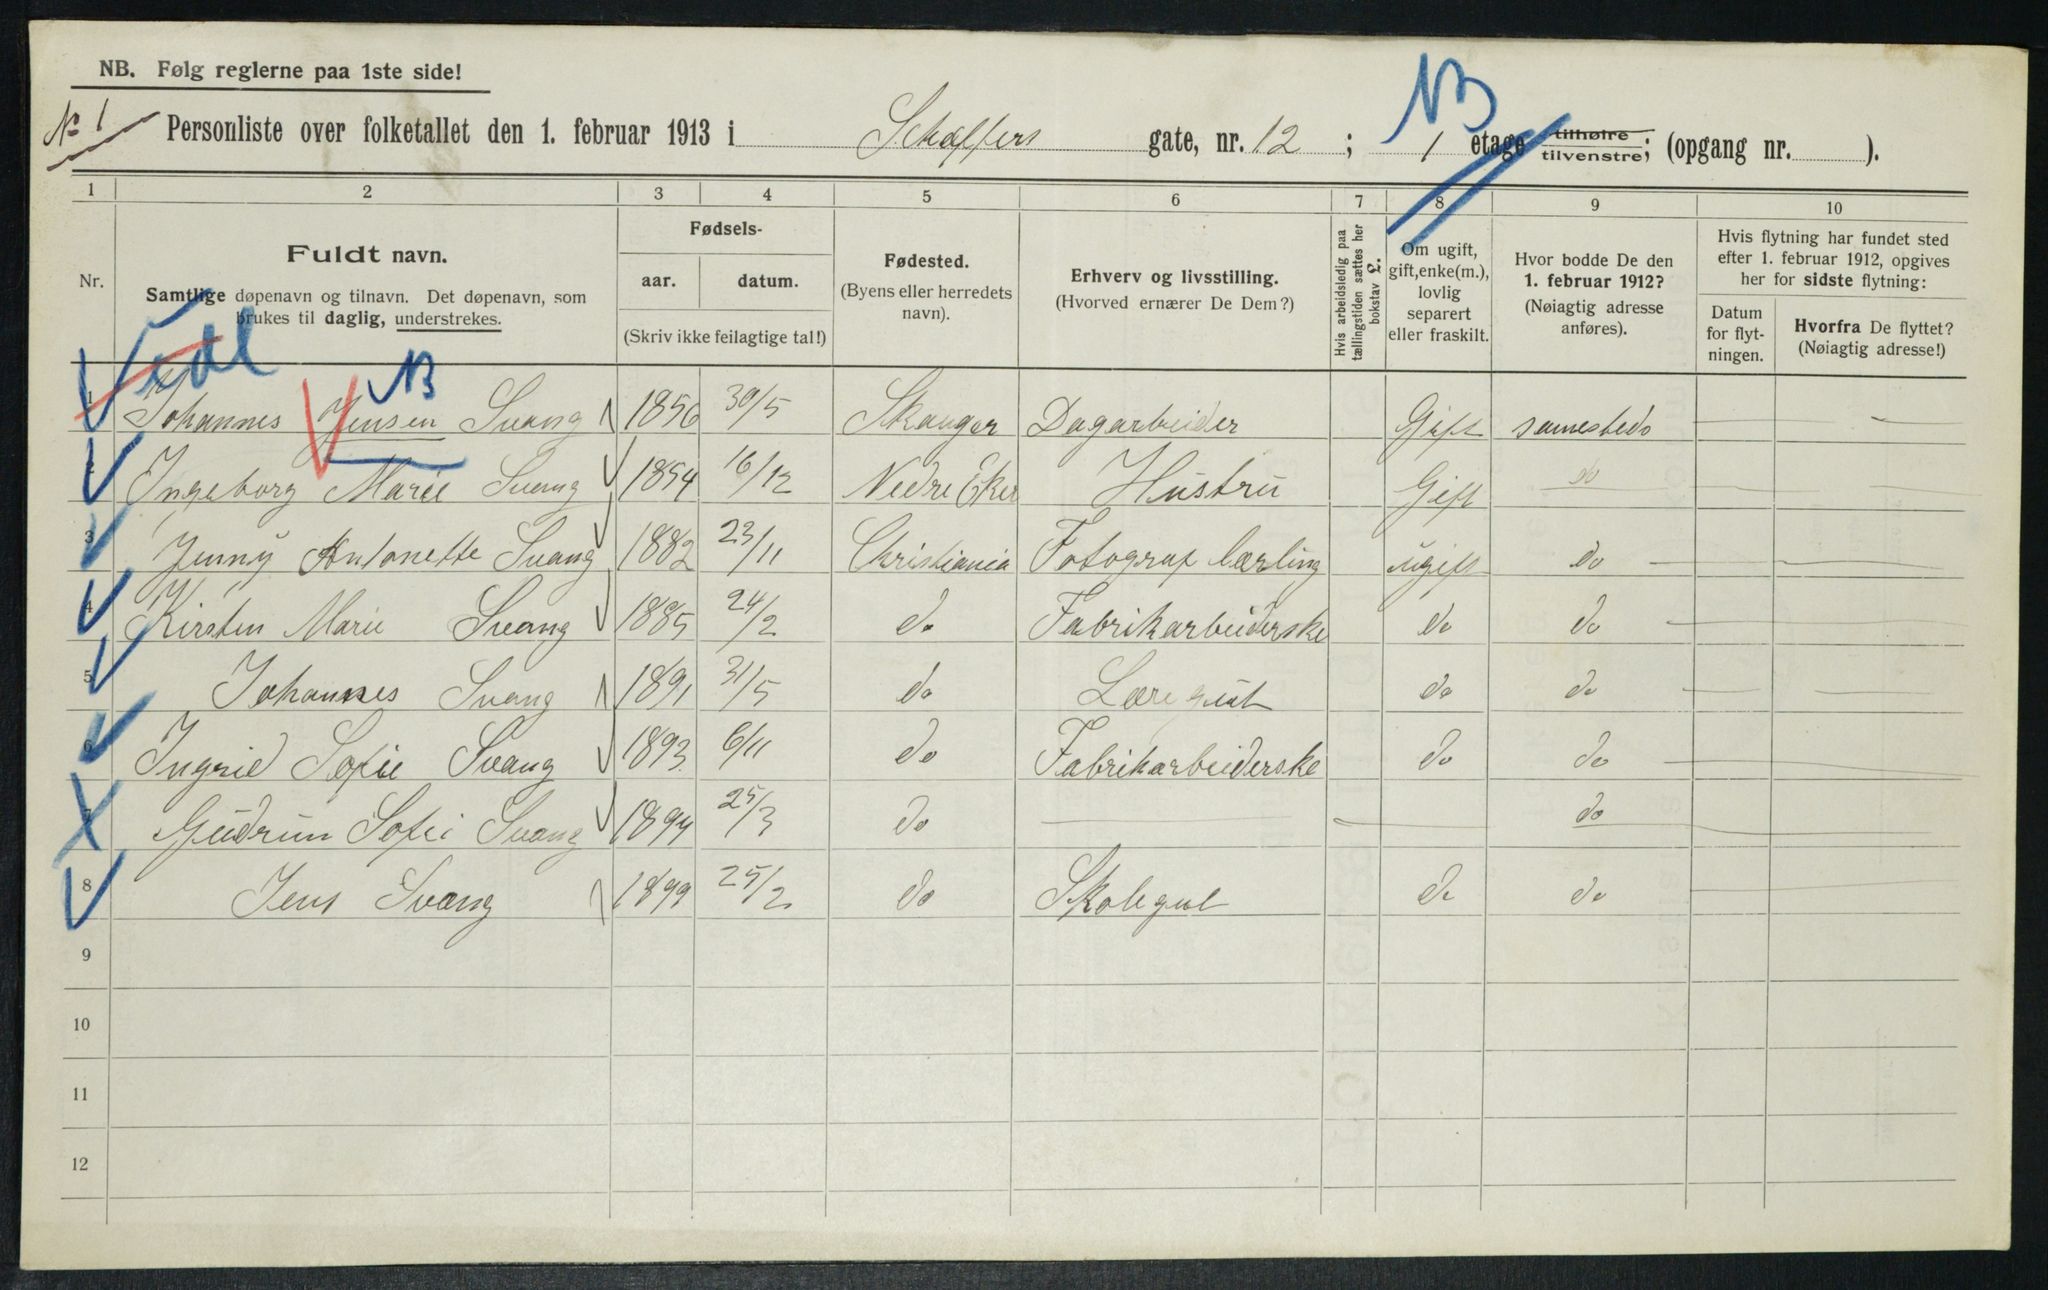 NB. Følg reglerne paa 1ste side!
№ 1
Personliste over folketallet den 1. februar 1913 i Schæffers gate, nr. 12; 1 etage tilhøire tilvenstre; (opgang nr. ).
NB
1 2 3 4 5 6 7 8 9 10
Nr.
Fuldt navn.
Samtlige døpenavn og tilnavn. Det døpenavn, som
brukes til daglig, understrekes.
Fødsels-
aar. datum.
(Skriv ikke feilagtige tal!)
Fødested.
(Byens eller herredets
navn).
Erhverv og livsstilling.
(Hvorved ernærer De Dem?)
Hvis arbeidsledig paa
tællingstiden sættes her
bokstav L.
Om ugift,
gift, enke(m.),
lovlig
separert
eller fraskilt.
Hvor bodde De den
1. februar 1912?
(Nøiagtig adresse
anføres).
Hvis flytning har fundet sted
efter 1. februar 1912, opgives
her for sidste flytning:
Datum
for flyt-
ningen.
Hvorfra De flyttet?
(Nøiagtig adresse!)
NB
1 Johannes Jensen Svang 1856 30/5 Skauger Dagarbeider Gift samesteds
2 Ingeborg Marie Svang 1854 16/12 Nedre Eker Hustru Gift do
3 Jenny Antonette Svang 1882 23/11 Christiania Fotograf lærling ugift do
4 Kirsten Marie Svang 1885 24/2 do Fabrikarbeiderske do do
5 Johannes Svang 1891 31/5 do Læregut do do
6 Ingrid Sofie Svang 1893 6/11 do Fabrikarbeiderske do do
7 Gudrun Sofie Svang 1894 25/3 do do
8 Jens Svang 1899 25/2 do Skolegut do do
9
10
11
12